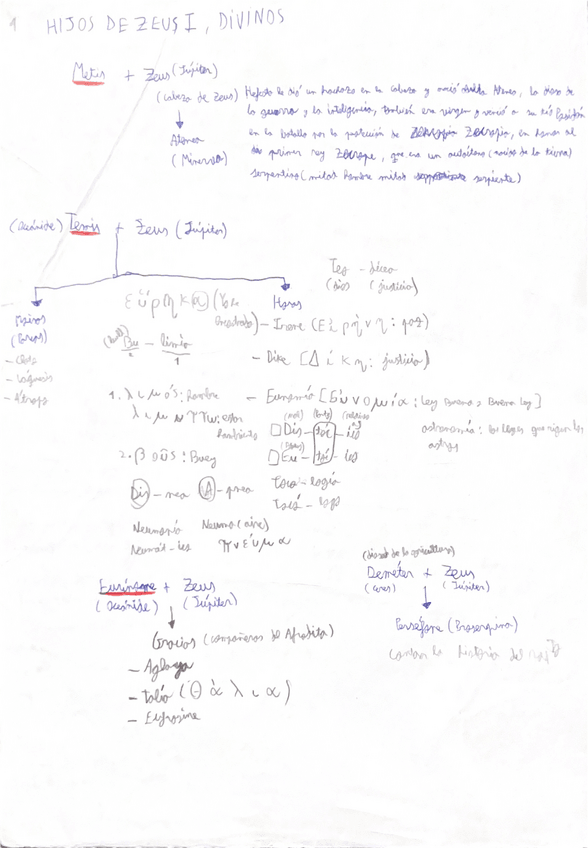 1 HIJOS DE ZEUS I, DIVINOS
Metis + Zeus (Júpiter)
(cabeza de Zeus) Hefesto le dió un hachazo en la cabeza y nació Atenea, la diosa de
la guerra y la inteligencia, también era virgen y venció a su tío Poseidón
en la batalla por la posición de en honor al
primer rey que era un autóctono (nacido de la tierra)
serpentino (mitad hombre mitad serpiente)
Atenea
(Minerva)
(Oceánide) Temis + Zeus (Júpiter)
Teo - dicea
(dios) (justicia)
εὕρηκα (lo he encontrado)
Moiras
(Parcas)
- Cloto
- Láquesis
- Átropo
Horas
- Irene (Εἰρήνη: paz)
Bu - limia
2 1
- Dike [Δίκη: justicia)
1. λιμός: Hambre
- Eunomía [Εὐνομία: ley buena, Buena ley]
astronomía: las leyes que rigen los
astros
hambriento
Dis
2. βοῦς: Buey
Eu
Dis - nea A - pnea
Toco - logía
Neumonía Neuma (aire)
πνεύμα
Eurínome + Zeus
(Oceánide) (Júpiter)
Gracias (compañeras de Afrodita)
- Aglaya
- Talía (Θάλια)
- Eufrosine
(diosa de la agricultura)
Deméter + Zeus
(Ceres) (Júpiter)
Perséfone (Proserpina)
contar la historia del rapto